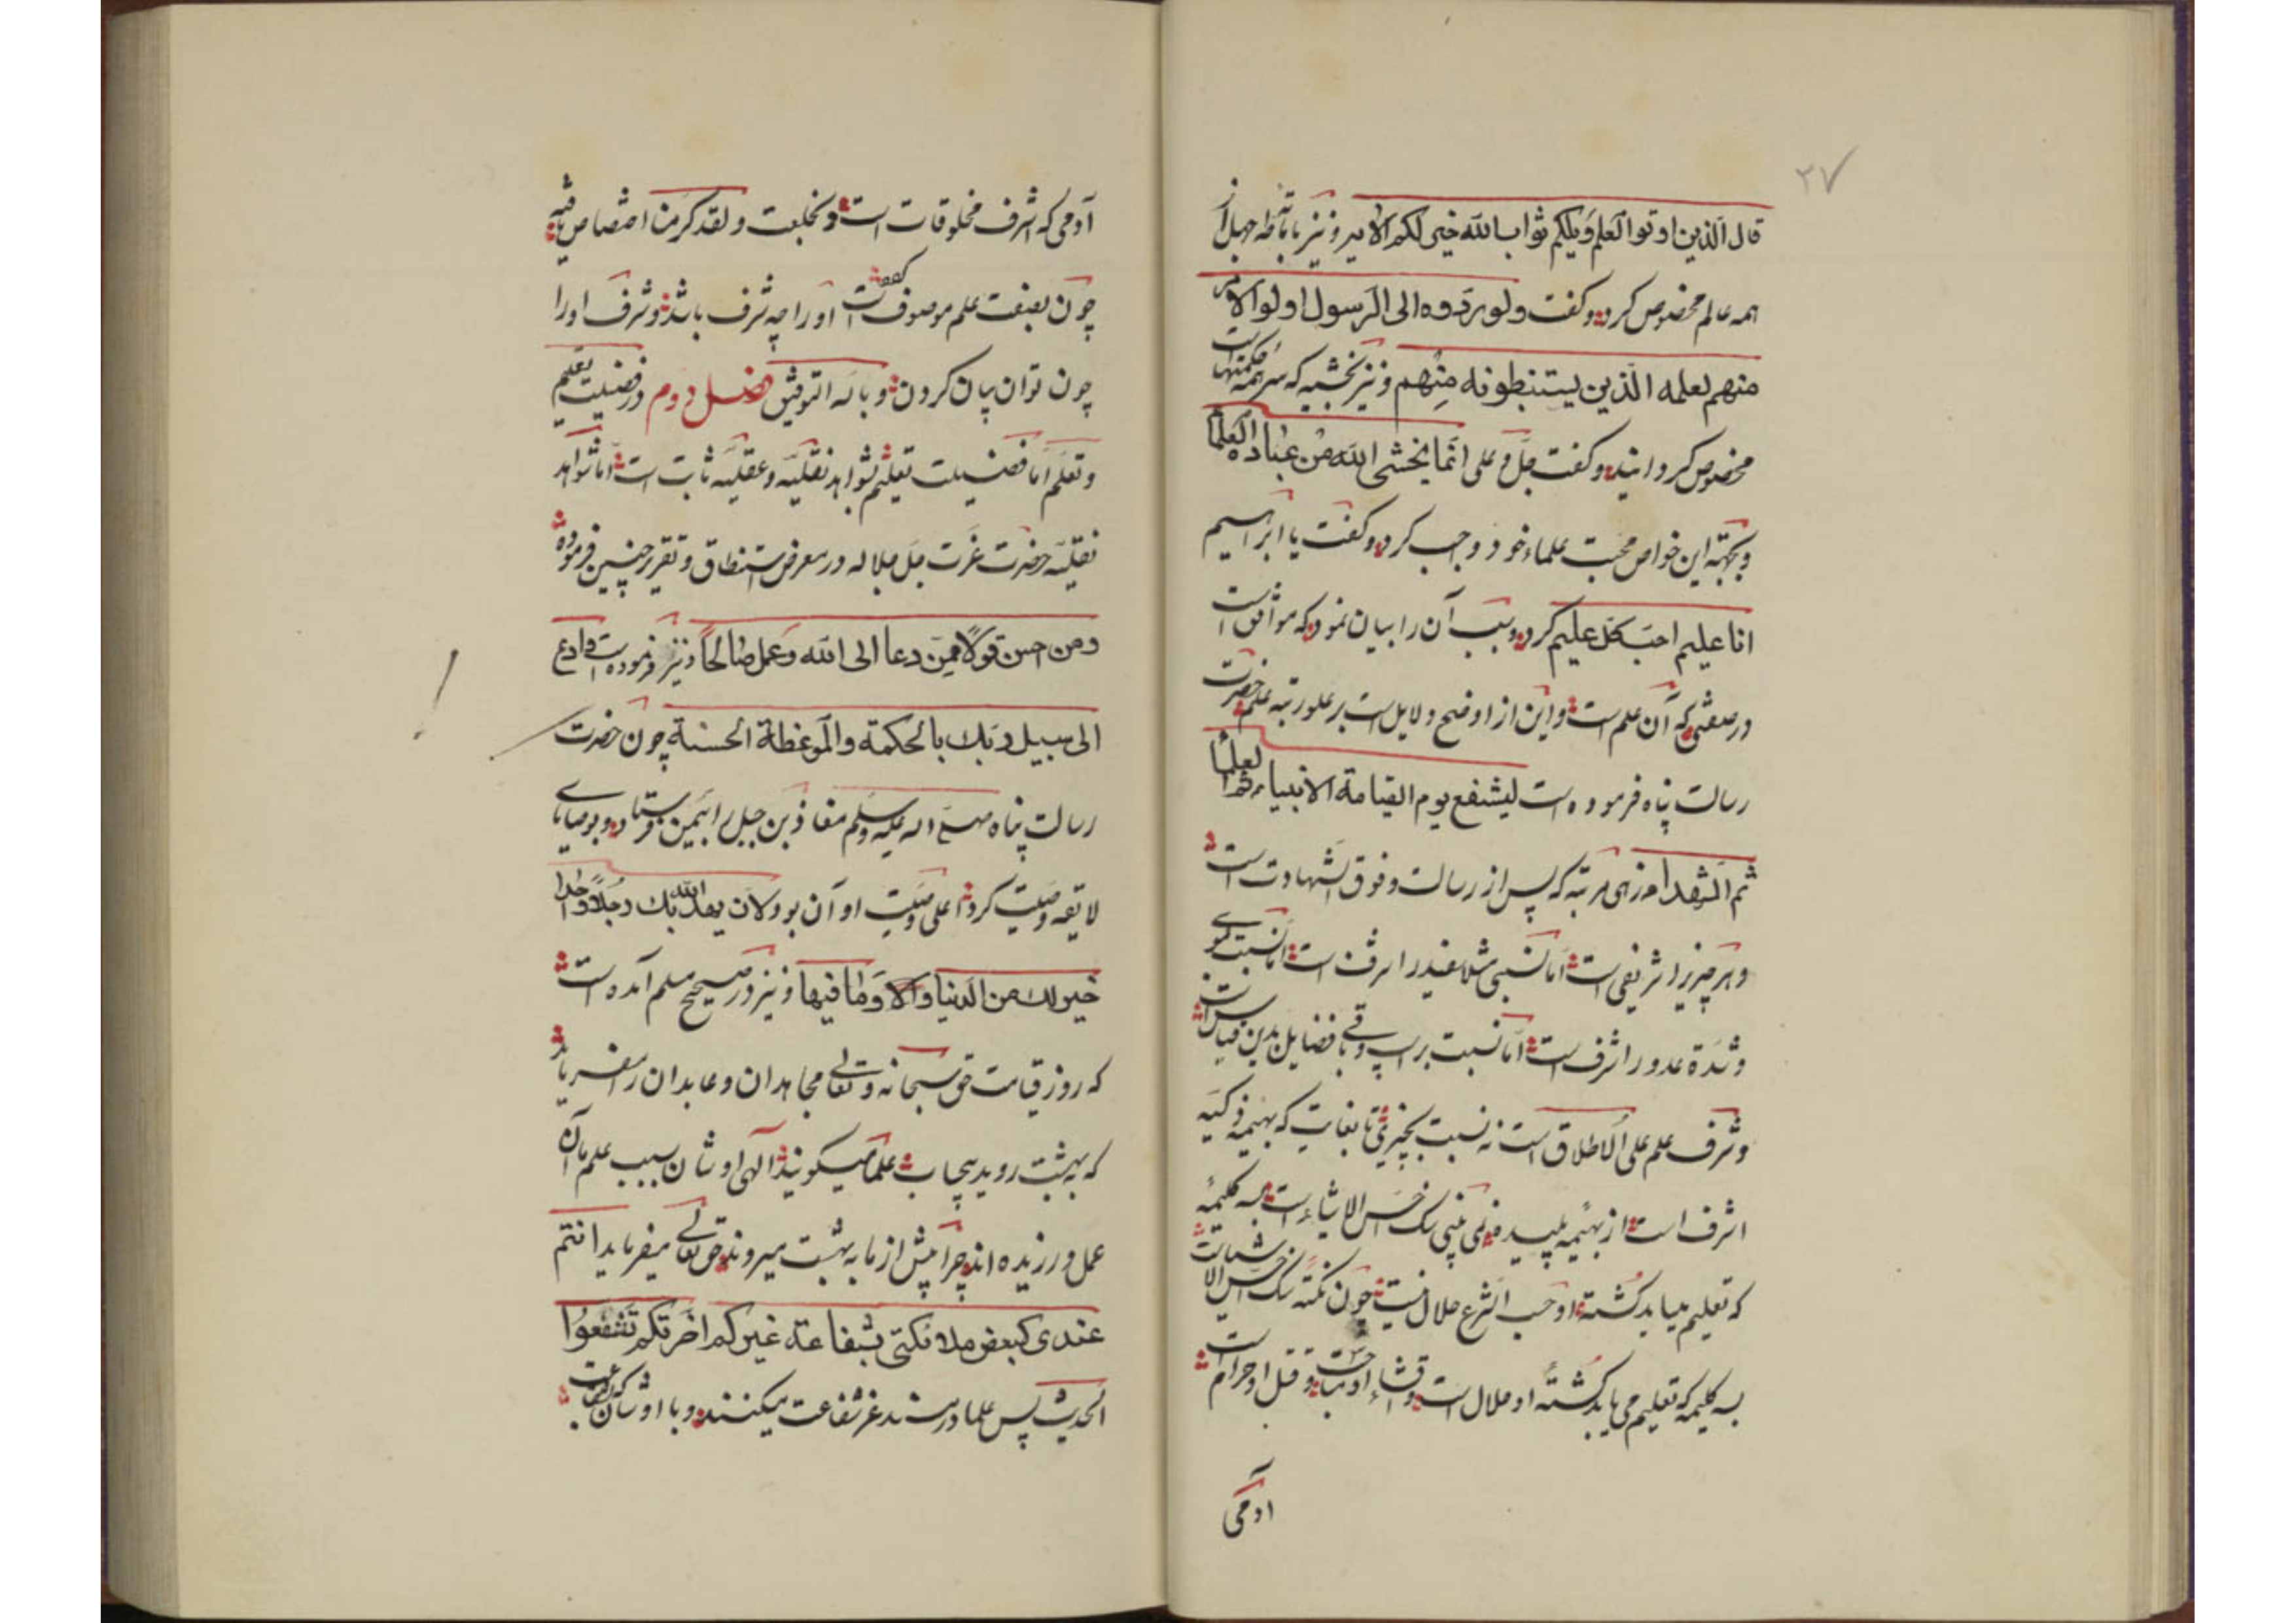 ۲۷
قال الذین اوتوا العلم ویلکم ثواب الله خیر لکم الامیر و نیز باماطه جهل از
همه عالم مخصوص کرد و گفت ولو ردوه الی الرسول و اولوا الامر
منهم لعلمه الذین یستنبطونه منهم و نیز بخشیه که سر همه حکمتهاست
مخصوص گردانید و گفت جل و علی انما یخشی الله من عباده العلما
و بجهة این خواص محبت علماء خود واجب کرد و گفت یا ابراهیم
انا علیم احب کل علیم کرد و سبب آن را بیان نمود که موافق است
در صفتی که آن علم است و این از اوضح دلایل است بر علو رتبه علم حضرت
رسالت پناه فرموده است لیشفع یوم القیامة الانبیاء ثم العلما
ثم الشهدا زهی مرتبه که پس از رسالت و فوق الشهادت است
و هر چیز را شریفی است اما نسبی مثلا را شرف است اما نسبت
و شدة عدو را شرف است اما نسبت بر اسپ و باقی فضایل بدین قیاس است
و شرف علم علی الاطلاق است نه نسبت بچیزی تا بغایت که بهیمه
اشرف است از بهیمه پلید نمی بینی سک اخس الاشیاء است سه کلیمه
که تعلیم میباید کشته او حسب الشرع حلال نیست چون نکته سک اخس الاشیاست
سه کلیمه که تعلیم می یابد کشته او حلال است
آدمی
آدمی که اشرف مخلوقات است و بخلعت و لقد کرمنا اختصاص یافته
چون بصفت علم موصوف است او را چه شرف باشد و شرف او را
چون توان بیان کردن و بالله التوفیق فصل دوم در فضیلت تعلیم
و تعلم اما فضیلت تعلیم بشواهد نقلیه و عقلیه ثابت است اما شواهد
نقلیه حضرت عزت جل جلاله در معرض استنطاق و تقریر چنین فرموده
ومن احسن قولا ممن دعا الی الله وعمل صالحا و نیز فرموده است و ادع
الی سبیل ربک بالحکمة والموعظة الحسنة چون حضرت
رسالت پناه صلی الله علیه وسلم معاذ بن جبل را بیمن فرستاد و بوصایای
لایقه وصیت کرد اعلی وصیت او آن بود لان یهد الله بک رجلا واحدا
خیر لک من الدنیا وما فیها و نیز در صحیح مسلم آمده است
که روز قیامت حق سبحانه و تعالی مجاهدان و عابدان را میفرماید
که بهشت روید بیحساب علما میگویند الهی اوشان بسبب علم ما آن
عمل ورزیده اند چرا پیش از ما به بهشت میروند حق تعالی میفرماید انتم
عندی کبعض ملائکتی بشفاعة غیرکم اخرتکم تشفعوا
الحدیث پس علما در شفاعت میکنند و با اوشان